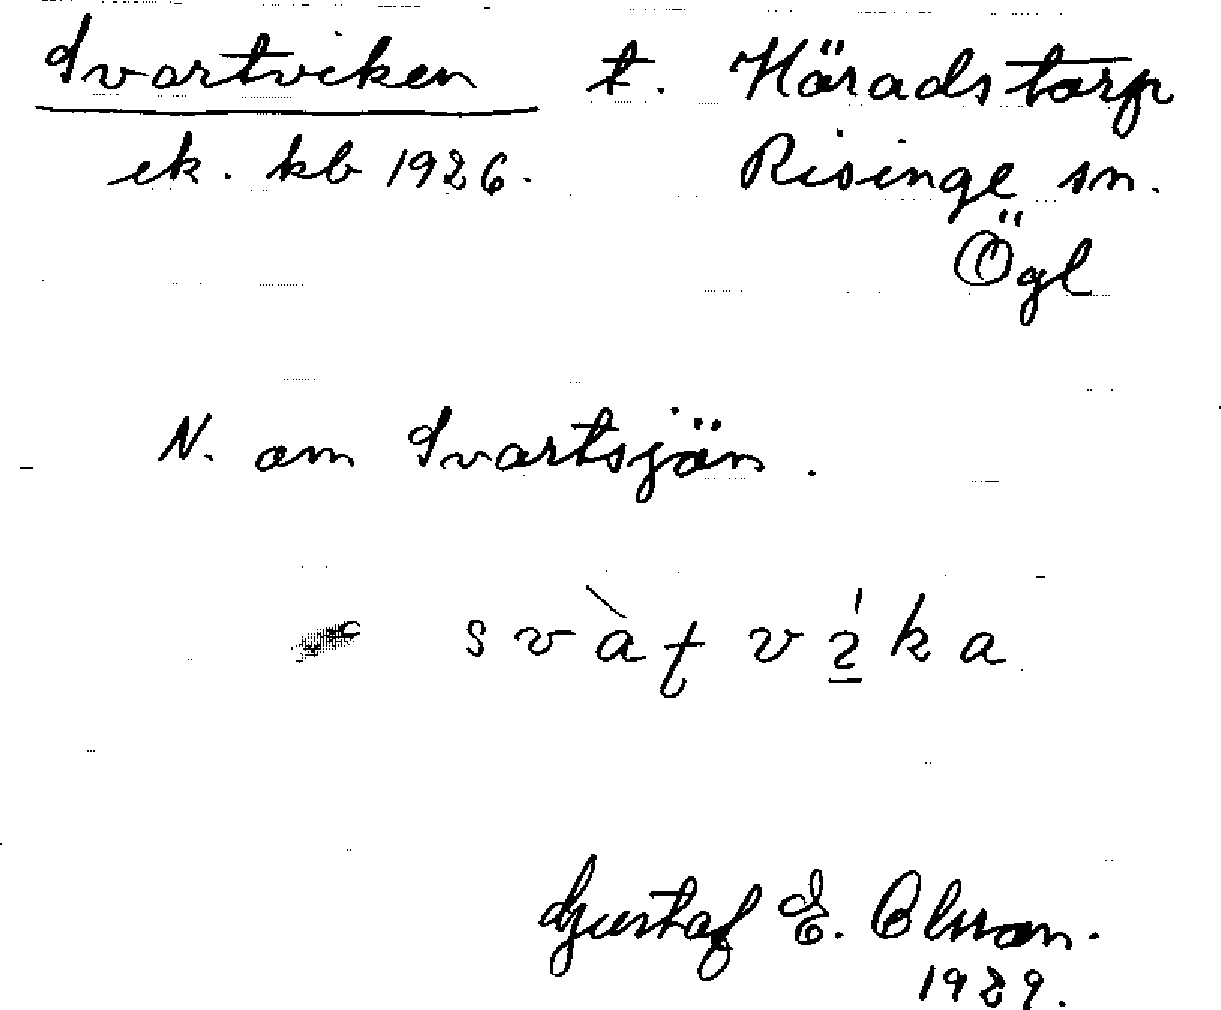 Svartviken t. Häradstorp
ek. kb 1926. Risinge sn.
Ögl
N. om Svartsjön.
Gustaf E. Olsson.
1929.